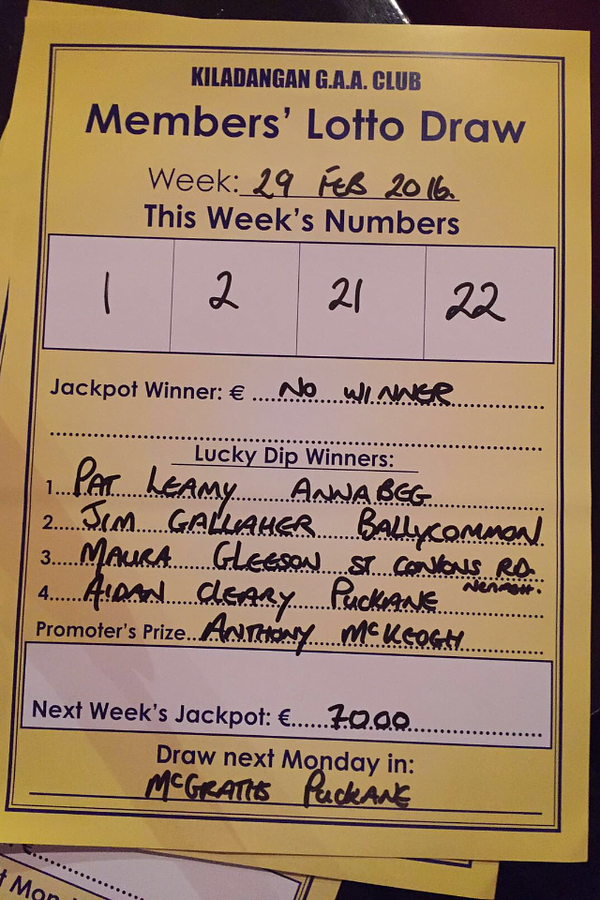 KILADANGAN G.A.A. CLUB
Members' Lotto Draw
Week: 29 FEB 2016.
This Week's Numbers
1 2 21 22
Jackpot Winner: € NO WINNER
Lucky Dip Winners:
1. PAT LEAMY ANNABEG
2. JIM GALLAHER BALLYCOMMON
3. MAURA GLEESON ST CONLONS RD.
NENAGH.
4. AIDAN CLEARY PUCKANE
Promoter's Prize ANTHONY McKEOGH
Next Week's Jackpot: € 7000
Draw next Monday in:
McGRATHS PUCKANE
€
t Mon